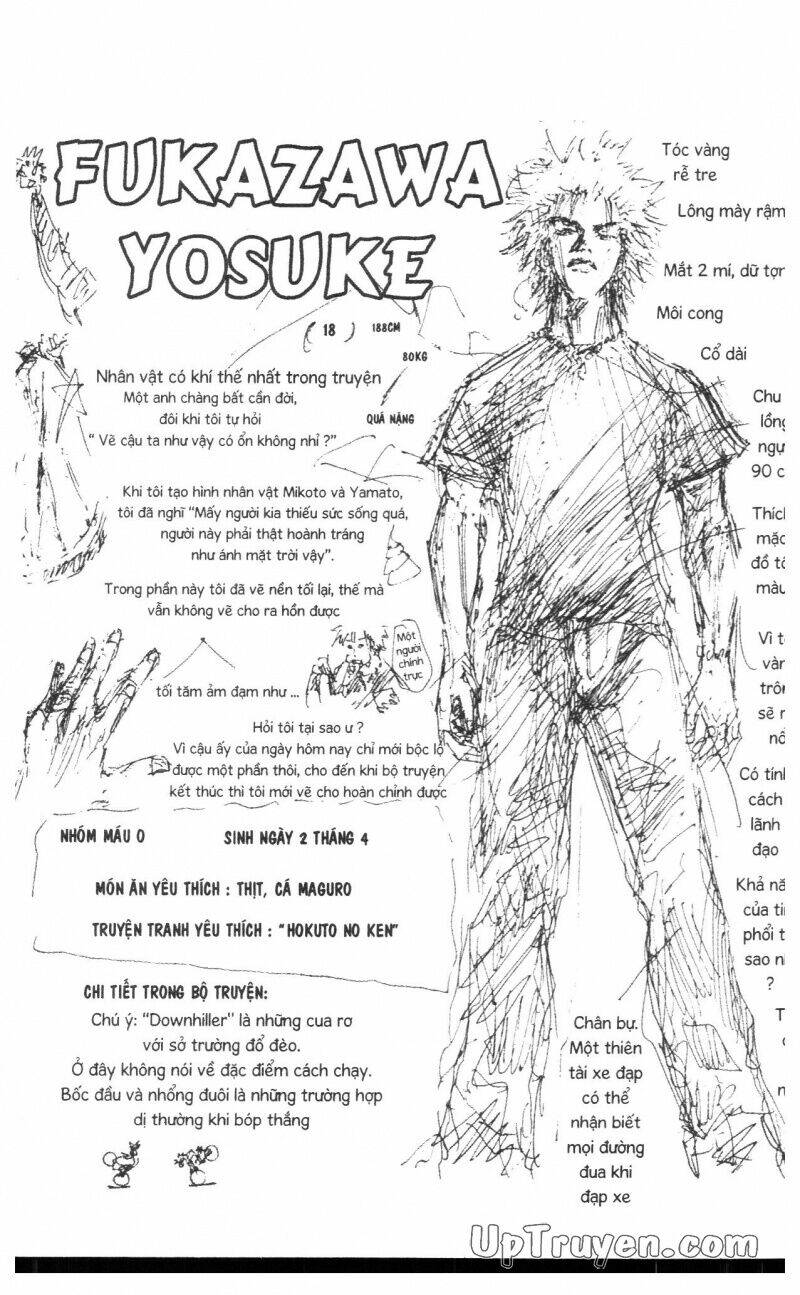 FUKAZAWA
YOSUKE
( 18 )
188CM
80KG
QUÁ NẶNG
Nhân vật có khí thế nhất trong truyện
Một anh chàng bất cần đời,
đôi khi tôi tự hỏi
“ Vẽ cậu ta như vậy có ổn không nhỉ ?”
Khi tôi tạo hình nhân vật Mikoto và Yamato,
tôi đã nghĩ “Mấy người kia thiếu sức sống quá,
người này phải thật hoành tráng
như ánh mặt trời vậy”.
Trong phần này tôi đã vẽ nền tối lại, thế mà
vẫn không vẽ cho ra hồn được
tối tăm ảm đạm như ...
Một
người
chính
trực
Hỏi tôi tại sao ư ?
Vì cậu ấy của ngày hôm nay chỉ mới bộc lộ
được một phần thôi, cho đến khi bộ truyện
kết thúc thì tôi mới vẽ cho hoàn chỉnh được
NHÓM MÁU O
SINH NGÀY 2 THÁNG 4
MÓN ĂN YÊU THÍCH : THỊT, CÁ MAGURO
TRUYỆN TRANH YÊU THÍCH : “HOKUTO NO KEN”
CHI TIẾT TRONG BỘ TRUYỆN:
Chú ý: “Downhiller” là những cua rơ
với sở trường đổ đèo.
Ở đây không nói về đặc điểm cách chạy.
Bốc đầu và nhổng đuôi là những trường hợp
dị thường khi bóp thắng
Tóc vàng
rễ tre
Lông mày rậm
Mắt 2 mí, dữ tợn
Môi cong
Cổ dài
Chu
lồng
ngự
90 c
Thích
mặc
đồ tố
màu
Vì t
vàn
trôn
sẽ
nổ
Có tính
cách
lãnh
đạo
Khả nă
của ti
phổi t
sao n
?
T
Chân bự.
Một thiên
tài xe đạp
có thể
nhận biết
mọi đường
đua khi
đạp xe
UpTruyen.com